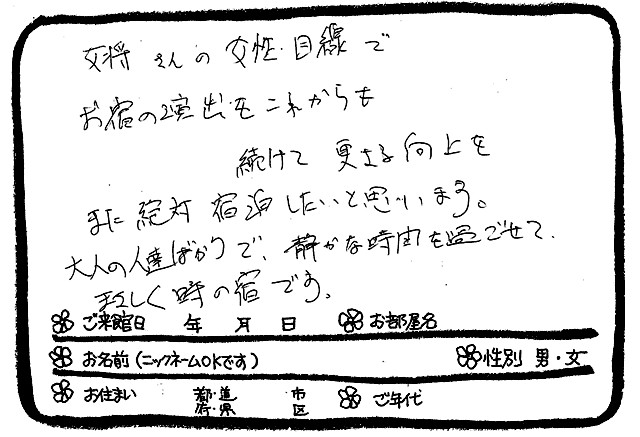 女将さんの女性目線で
お宿の演出をこれからも
続けて 更なる向上を
また絶対 宿泊したいと思います。
大人の人達ばかりで、静かな時間を過ごせて、
正しく時の宿です。
ご来館日 年 月 日 お部屋名
お名前(ニックネームOKです) 性別 男・女
お住まい 都・道 市 ご年代
府・県 区